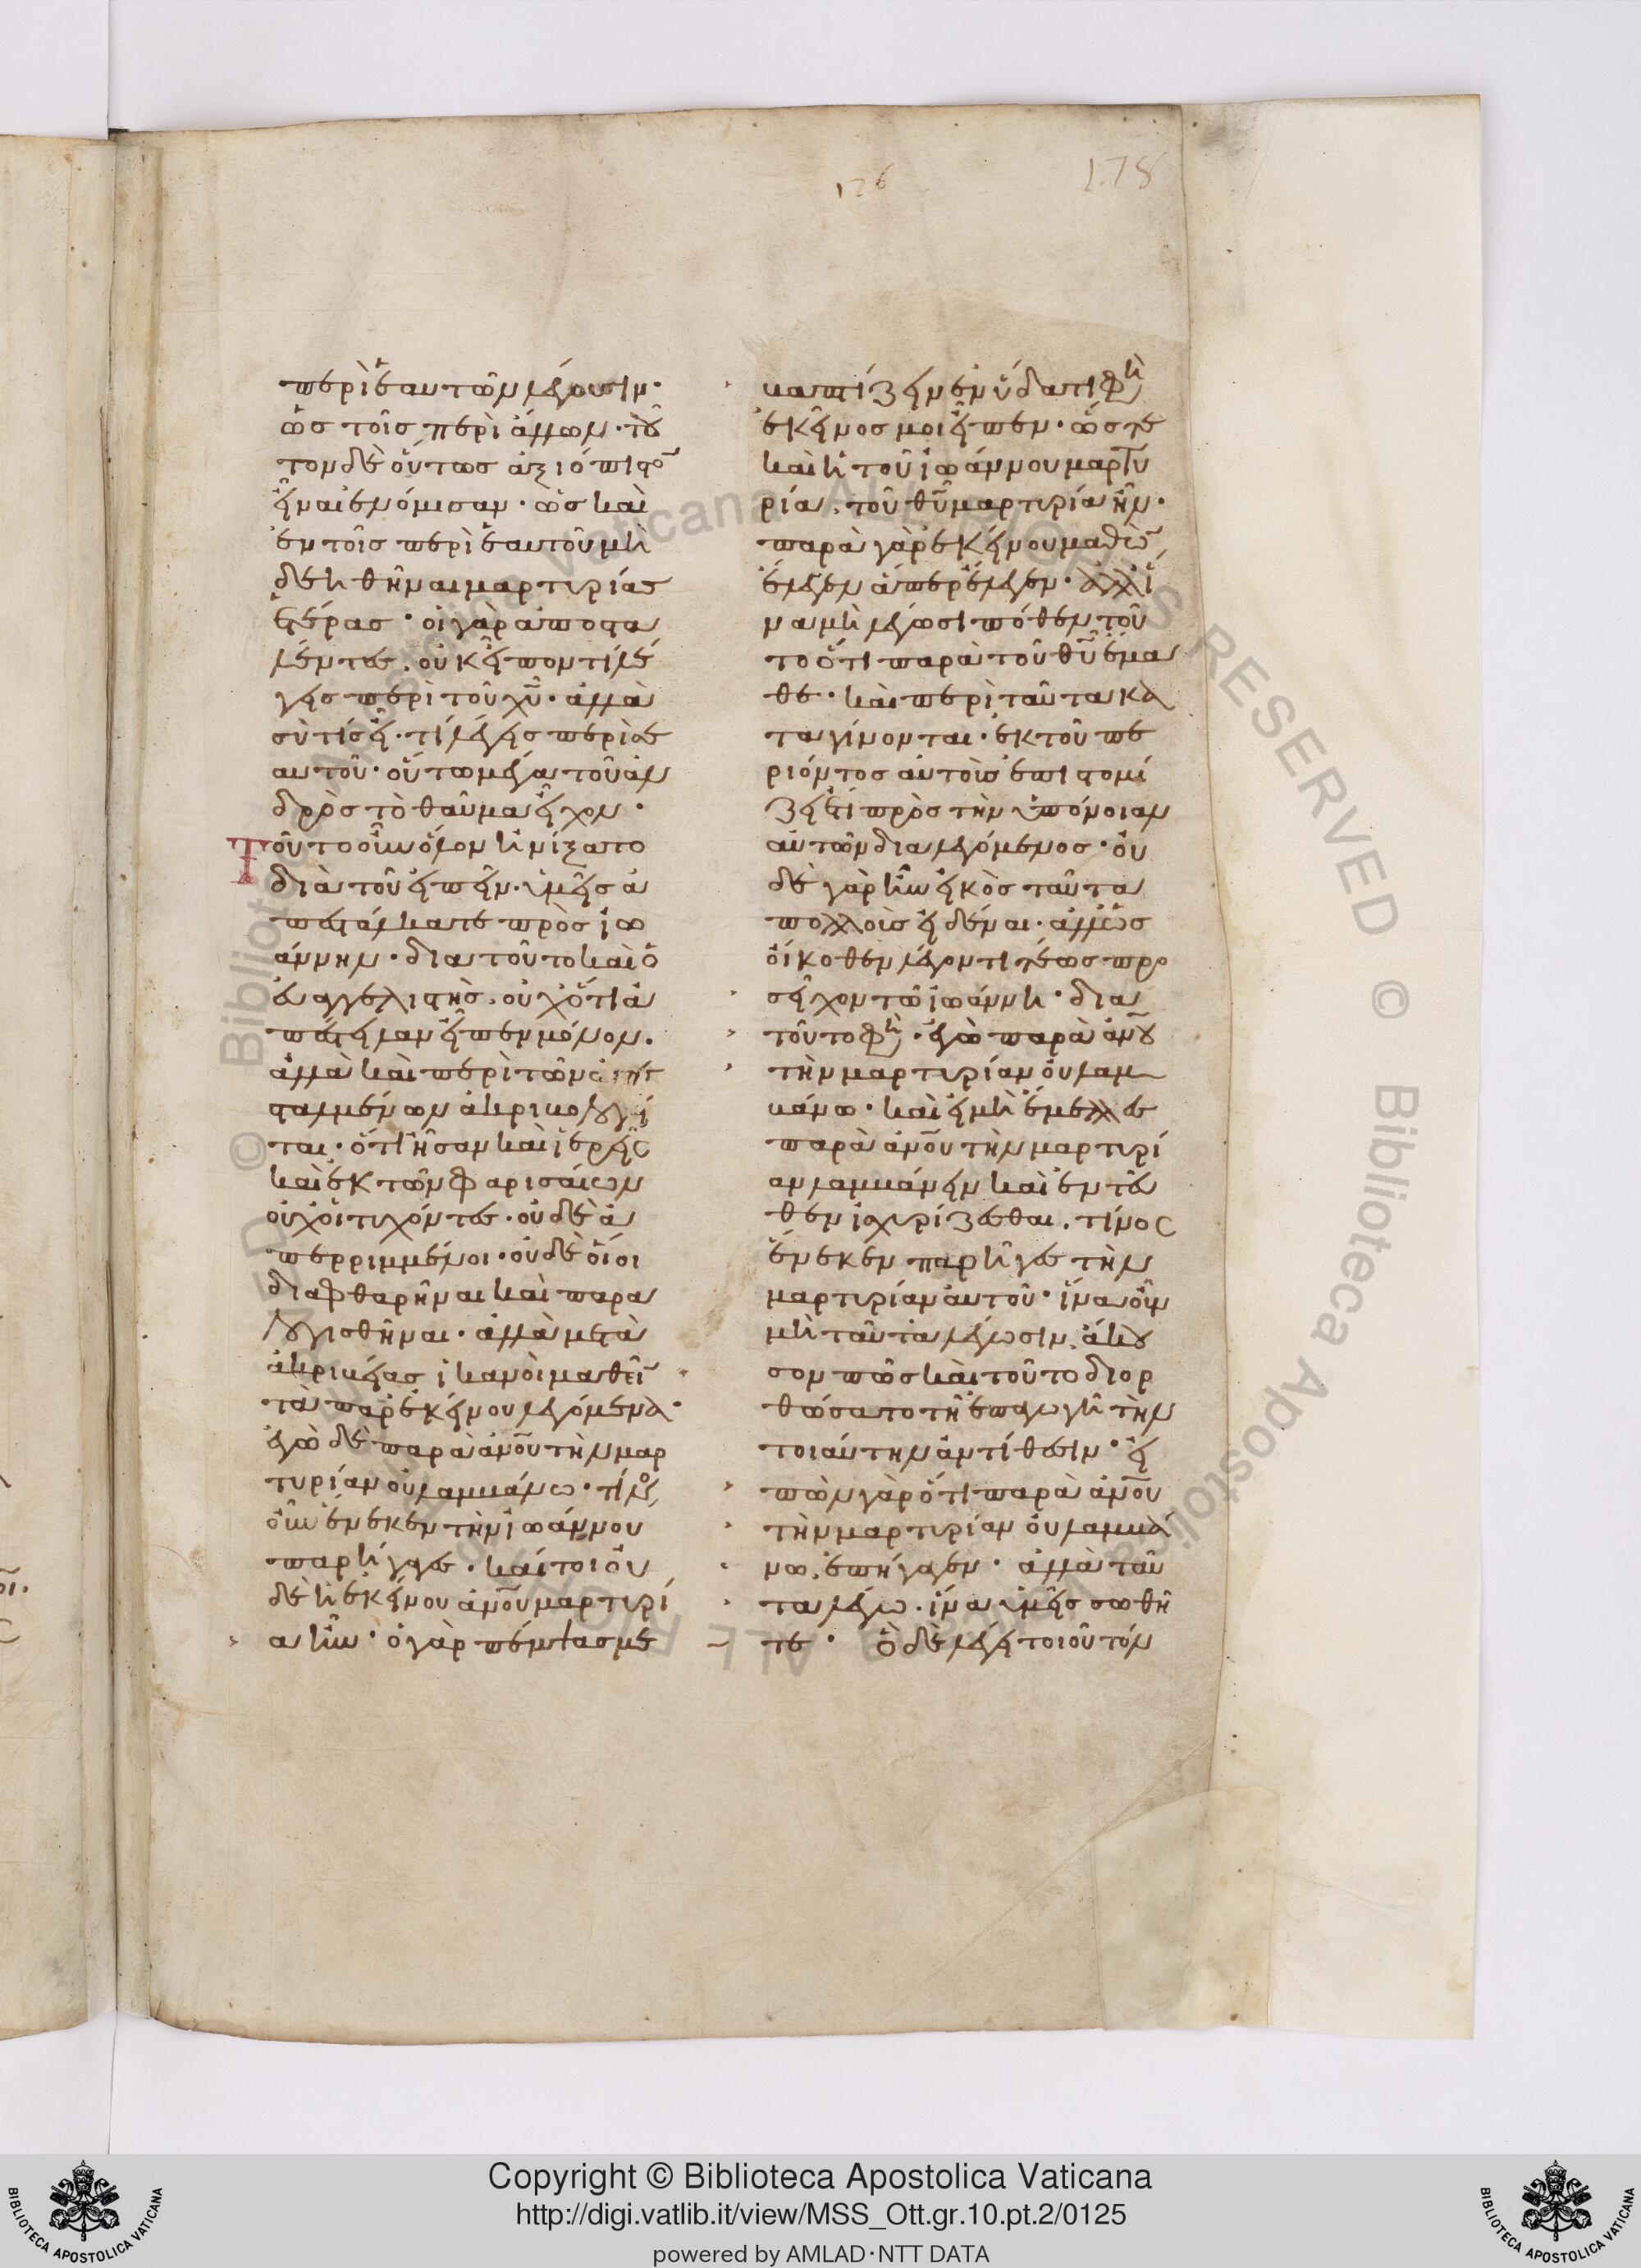 126
178
περὶ ἑαυτῶν λέγουσιν·
ὡς τοῖς περὶ ἄλλων· τοῦ
τον δὲ οὕτως ἀξιόπιστο̅
εἶναι ἐνόμισαν· ὡς καὶ
ἐν τοῖς περὶ ἑαυτοῦ μὴ
δεηθῆναι μαρτυρίας
ἑτέρας· οἱ γὰρ ἀποστα
λέντες, οὐκ εἶπον τί λέ
γεις περὶ τοῦ χ̅υ̅· ἀλλὰ
σὺ τίς εἶ· τί λέγεις περὶ σε
αυτοῦ· οὕτω μέγα τοῦ ἀν
δρὸς τὸ θαῦμα εἶχον·
Τοῦτο οὖν ὅλον ἠνίξατο
διὰ τοῦ εἰπεῖν· ὑμεῖς ἀ
πεστάλκατε πρὸς ἰω
άννην· διατοῦτο καὶ ὁ
εὐαγγελιστὴς, οὐχ ὅτι ἀ
πέστειλαν εἶπεν μόνον·
ἀλλὰ καὶ περὶ τῶν ἀπε
σταλμένων ἀκριβολογεῖ
ται· ὅτι ἦσαν καὶ ἱερεῖς
καὶ ἐκ τῶν φαρισαίων
οὐχ οἱ τυχόντες· οὐδὲ ἀ
περριμμένοι· οὐδὲ οἷοι
διαφθαρῆναι καὶ παρα
λογισθῆναι· ἀλλὰ μετὰ
ἀκριβείας ἱκανοὶ μαθεῖ̅
τὰ παρ' ἐκείνου λεγόμενα·
ἐγὼ δὲ παρὰ ἀν̅ο̅υ̅ τὴν μαρ
τυρίαν οὐ λαμβάνω· τίνος
οὖν ἕνεκεν τὴν ἰωάννου
παρήγαγες· καίτοι οὐ
δὲ ἡ ἐκείνου ἀν̅ο̅υ̅ μαρτυρί
α ἦν· ὁ γὰρ πέμψας με
βαπτίζειν ἐν ὕδατι φη(σὶ)
ἐκεῖνός μοι εἶπεν· ὥστε
καὶ ἡ τοῦ ἰωάννου μαρτυ
ρία, τοῦ θ̅υ̅ μαρτυρία ἦν·
παρὰ γὰρ ἐκείνου μαθὼ̅
ἔλεγεν ἅπερ ἔλεγεν· ἀλλ' ἵ
να μὴ λέγωσι πόθεν τοῦ
το ὅτι παρὰ τοῦ θ̅υ̅ ἔμα
θε· καὶ περὶ ταῦτα κα
ταγίνονται· ἐκ τοῦ πε
ριόντος αὐτοὺς ἐπιστομί
ζει ἔτι πρὸς τὴν ὑπόνοιαν
αὐτῶν διαλεγόμενος· οὐ
δὲ γὰρ ἦν εἰκὸς ταῦτα
πολλοὺς εἰδέναι· ἀλλ' ὡς
οἴκοθεν λέγοντι τέως προ
σεῖχον τῶ ἰωάννη· δια
τοῦτο φη(σὶν)· ἐγὼ παρὰ ἀν̅ο̅υ̅
τὴν μαρτυρίαν οὐ λαμ
βάνω· καὶ εἰ μὴ ἔμελλες
παρὰ ἀν̅ο̅υ̅ τὴν μαρτυρί
αν λαμβάνειν καὶ ἐντεῦ
θεν ἰσχυρίζεσθαι, τίνος
ἕνεκεν παρήγαγες τὴν
μαρτυρίαν αὐτοῦ· ἵνα οὖν
μὴ ταῦτα λέγωσιν, ἄκου
σον πῶς καὶ τοῦτο διορ
θώσατο τῆ ἐπαγωγῆ τὴν
τοιαύτην ἀντίθεσιν· εἰ
πὼν γὰρ ὅτι παρὰ ἀν̅ο̅υ̅
τὴν μαρτυρίαν οὐ λαμβά
νω, ἐπήγαγεν· ἀλλὰ ταῦ
τα λέγω· ἵνα ὑμεῖς σωθῆ
τε· ὃ δὲ λέγει τοιοῦτόν
Copyright © Biblioteca Apostolica Vaticana
http://digi.vatlib.it/view/MSS_Ott.gr.10.pt.2/0125
powered by AMLAD·NTT DATA